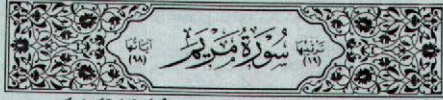 ترتيبها (١٩) سُورَةُ مَرْيَمَ آياتها (٩٨)